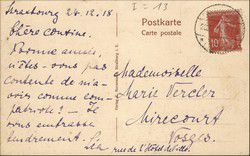 I = 13
Strasbourg 24.12.18
Chère cousine,
Bonne année,
n'êtes-vous pas
contente de m'a-
voir comme com-
patriote? — Je
vous embrasse
tendrement.
Postkarte
Carte postale
Mademoiselle
Marie Vercler
Mirecourt
Vosges
rue de l'Hôtel de Ville
10